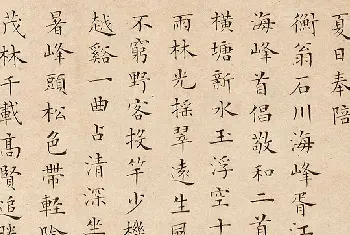 夏日奉陪
衡翁石川海峰胥江
海峰首倡敬和二首
橫塘新水玉浮空十
雨林光採翠遠生風
不窮野客投竿少機
越谿一曲占清深坐
暑峰頭松色帶輕陰
茂林千載高賢追